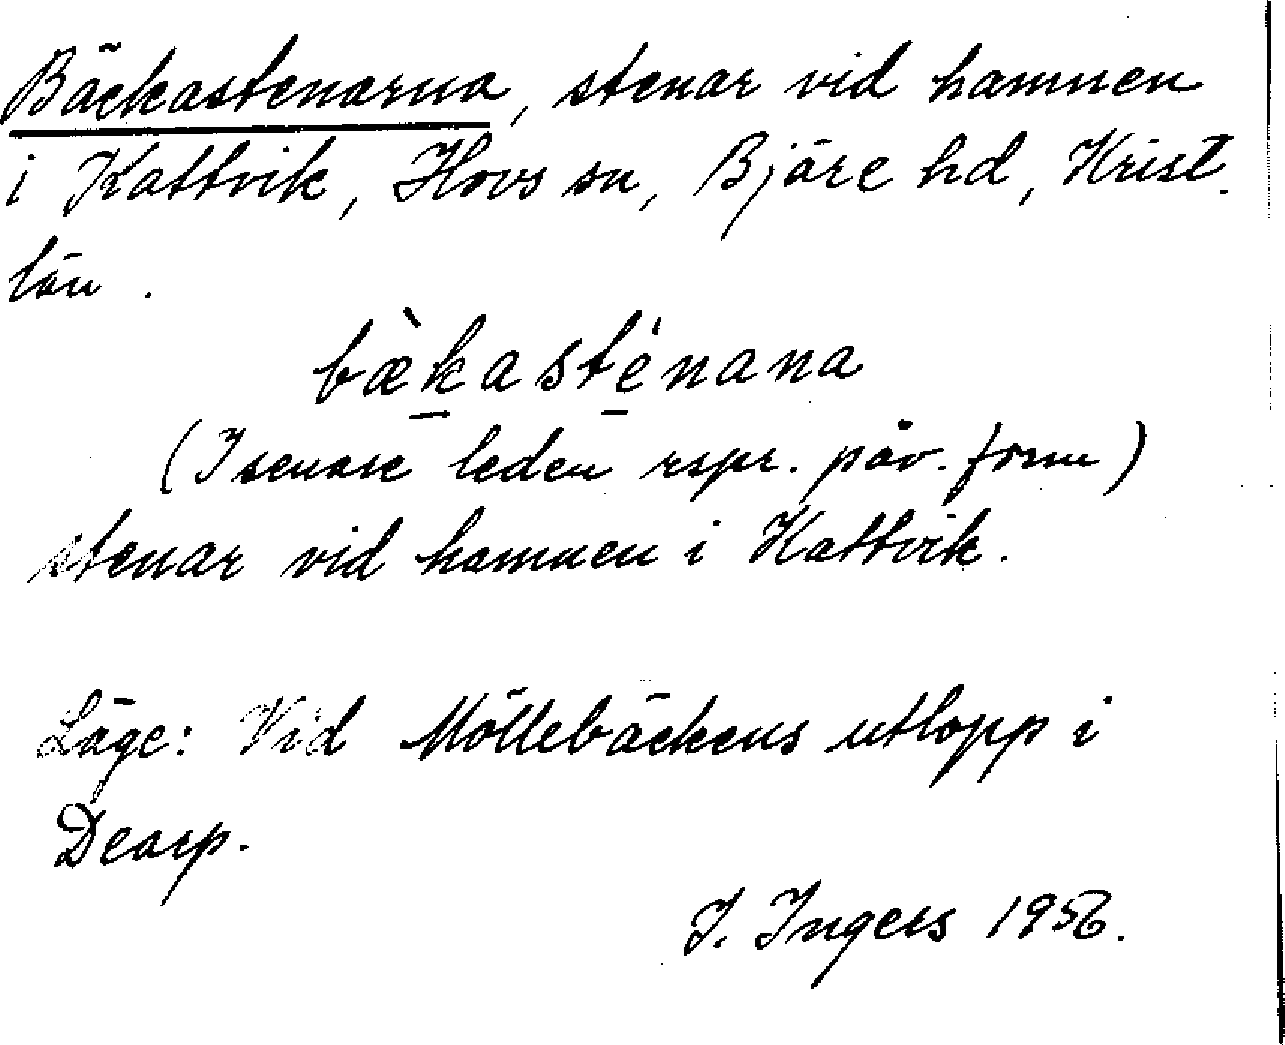 Bäckastenarna, stenar vid hamnen
i Kattvik, Hovs sn, Bjäre hd, Krist.
län.
bækastenana
(I senare leden rspr. påv. form)
stenar vid hamnen i Kattvik.
Läge: Vid Möllebäckens utlopp i
Dearp.
I. Ingers 1956.